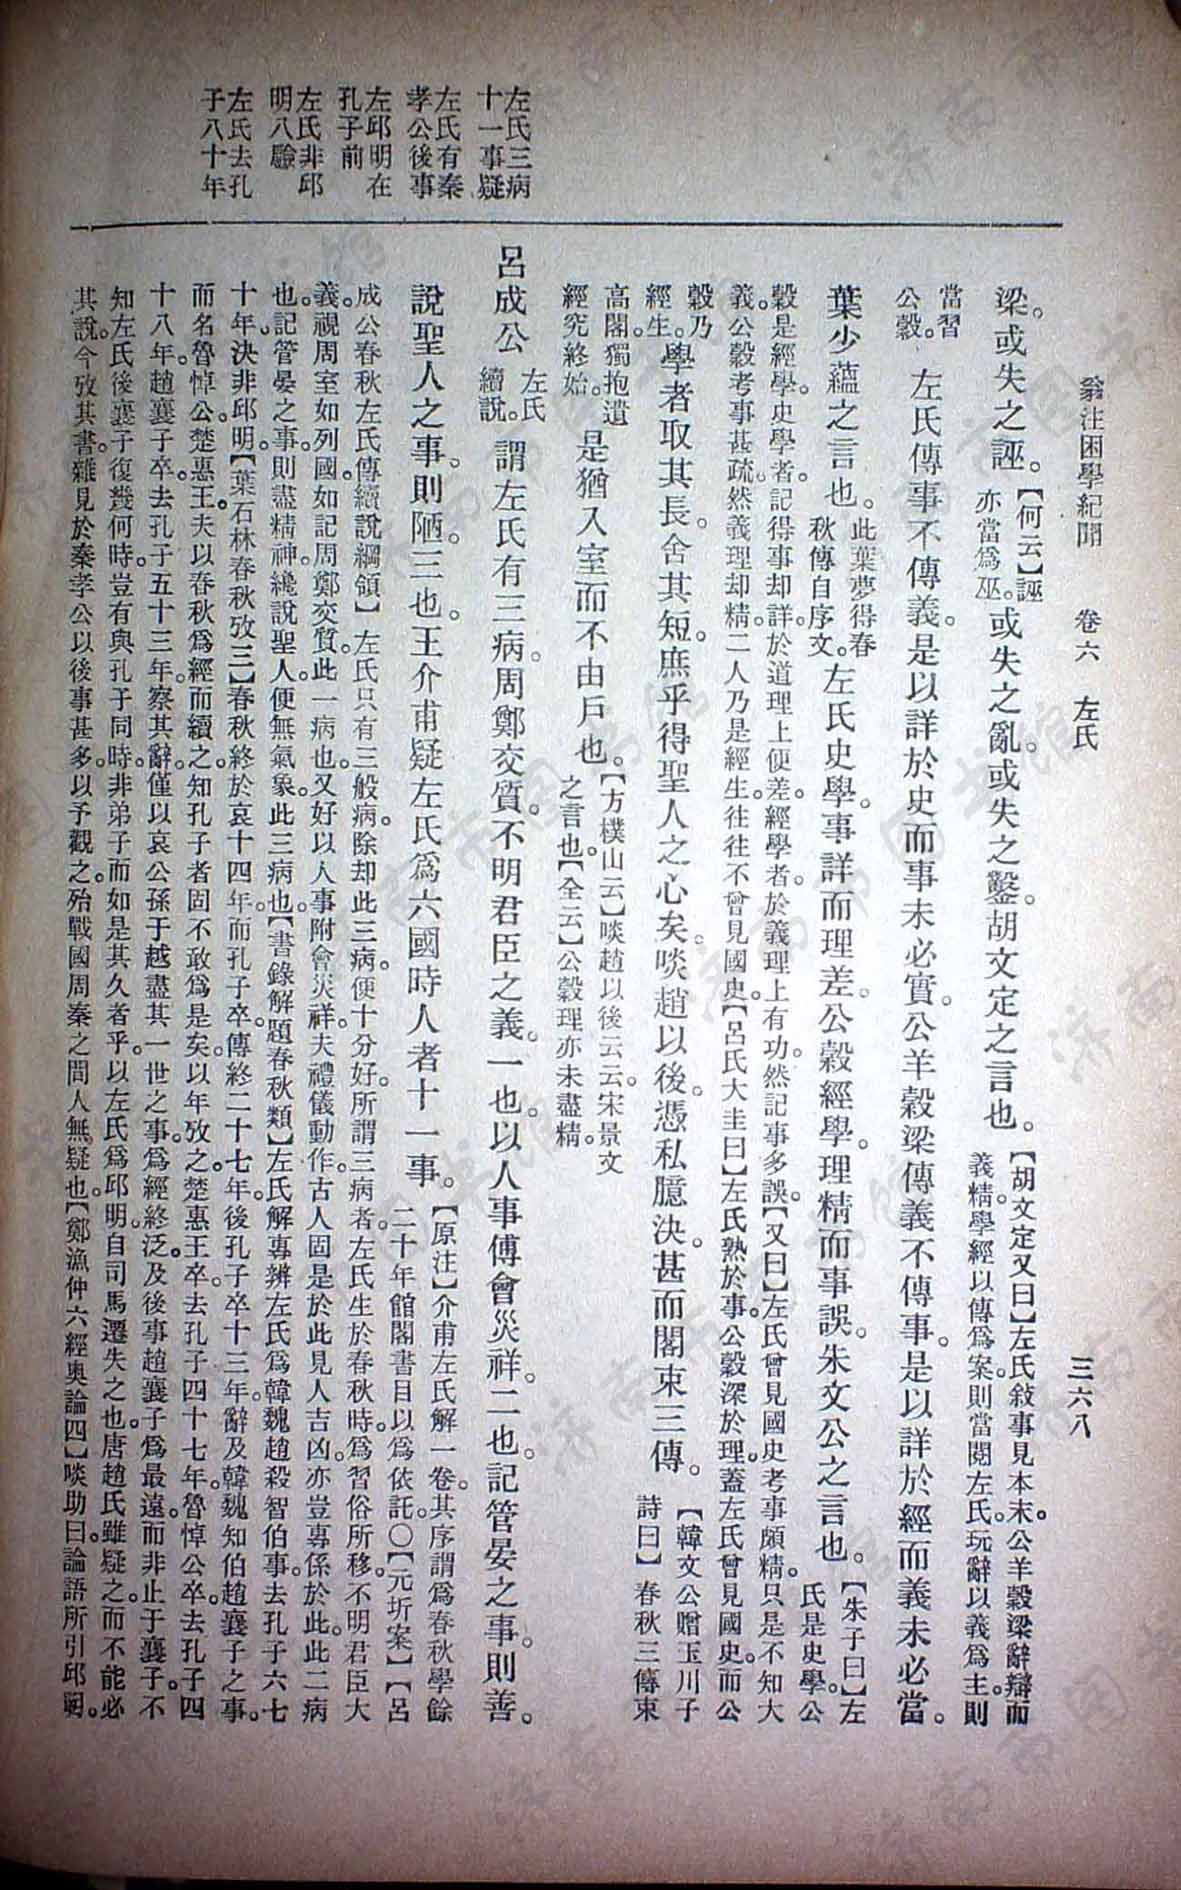 翁注困學紀聞　卷六　左氏　三六八
左氏三病
十一事疑
左氏有秦
孝公後事
左邱明在
孔子前
左氏非邱
明八驗
左氏去孔
子八十年
梁。或失之誣。【何云】誣
亦當爲巫。或失之亂。或失之鑿。胡文定之言也。【胡文定又曰】左氏敍事見本末。公羊穀梁辭辯而
義精。學經以傳爲案。則當閱左氏。玩辭以義爲主。則
當習
公穀。左氏傳事不傳義。是以詳於史而事未必實。公羊穀梁傳義不傳事。是以詳於經而義未必當。
葉少蘊之言也。此葉夢得春
秋傳自序文。左氏史學。事詳而理差。公穀經學。理精而事誤。朱文公之言也。【朱子曰】左
氏是史學。公
穀是經學。史學者。記得事却詳。於道理上便差。經學者。於義理上有功。然記事多誤。【又曰】左氏曾見國史。考事頗精。只是不知大
義。公穀考事甚疏。然義理却精。二人乃是經生。往往不曾見國史。【呂氏大圭曰】左氏熟於事。公穀深於理。蓋左氏曾見國史。而公
穀乃
經生。學者取其長。舍其短。庶乎得聖人之心矣。啖趙以後。憑私臆決。甚而閣束三傳。【韓文公贈玉川子
詩曰】春秋三傳束
高閣。獨抱遺
經究終始。是猶入室而不由戶也。【方樸山云】啖趙以後云云。宋景文
之言也。【全云】公穀理亦未盡精。
呂成公左氏
續說。謂左氏有三病。周鄭交質。不明君臣之義。一也。以人事傅會災祥。二也。記管晏之事。則善。
說聖人之事。則陋。三也。王介甫疑左氏爲六國時人者十一事。【原注】介甫左氏解一卷。其序謂爲春秋學餘
二十年。館閣書目以爲依託。〇【元圻案】【呂
成公春秋左氏傳續說綱領】左氏只有三般病。除却此三病。便十分好。所謂三病者。左氏生於春秋時。爲習俗所移。不明君臣大
義。視周室如列國。如記周鄭交質。此一病也。又好以人事附會災祥。夫禮儀動作。古人固是於此見人吉凶。亦豈專係於此。此二病
也。記管晏之事。則盡精神。纔說聖人。便無氣象。此三病也。【書錄解題春秋類】左氏解專辨左氏爲韓魏趙殺智伯事。去孔子六七
十年。決非邱明。【葉石林春秋攷三】春秋終於哀十四年。而孔子卒。傳終二十七年。後孔子卒十三年。辭及韓魏知伯趙襄子之事。
而名魯悼公。楚惠王。夫以春秋爲經而續之。知孔子者固不敢爲是矣。以年攷之。楚惠王卒。去孔子四十七年。魯悼公卒。去孔子四
十八年。趙襄子卒。去孔子五十三年。察其辭。僅以哀公孫于越盡其一世之事。爲經終。泛及後事。趙襄子爲最遠。而非止于襄子。不
知左氏後襄子復幾何時。豈有與孔子同時。非弟子而如是其久者乎。以左氏爲邱明。自司馬遷失之也。唐趙氏雖疑之。而不能必
其說。今攷其書。雜見於秦孝公以後事甚多。以予觀之。殆戰國周秦之間人無疑也。【鄭漁仲六經奧論四】啖助曰。論語所引邱明。